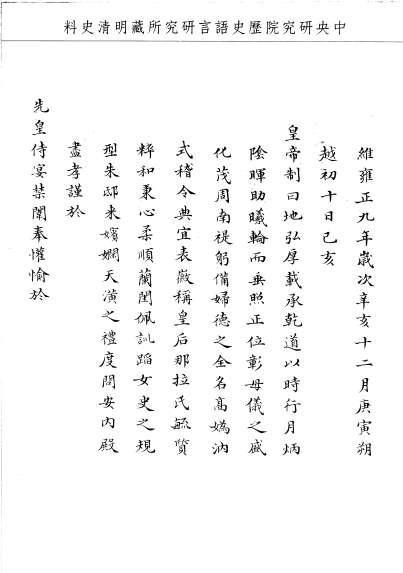 中央研究院歷史語言研究所藏明清史料
維雍正九年歲次辛亥十二月庚寅朔
越初十日己亥
皇帝制曰地弘厚載承乾道以時行月炳
陰暉助曦輪而垂照正位彰母儀之盛
化茂周南禔躬備婦德之全名高媯汭
式稽令典宜表徽稱皇后那拉氏毓質
粹和秉心柔順蘭閨佩訓蹈女史之規
型朱邸來嬪嫻天潢之禮度問安內殿
盡孝謹於
先皇侍宴禁闈奉懽愉於